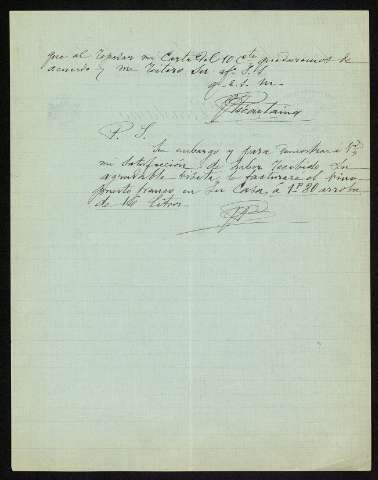 que al repasar mi Carta del 10 Cte quedaremos de
acuerdo y me reitero Su afº. S. S
q. b. s. m.
P. S.
Sin embargo y para demostrar a V.
mi satisfacción de haber recibido Su
agradable visita, le facturaré el vino
puesto franco en Su Casa, á 1'80 arroba
de 16 litros